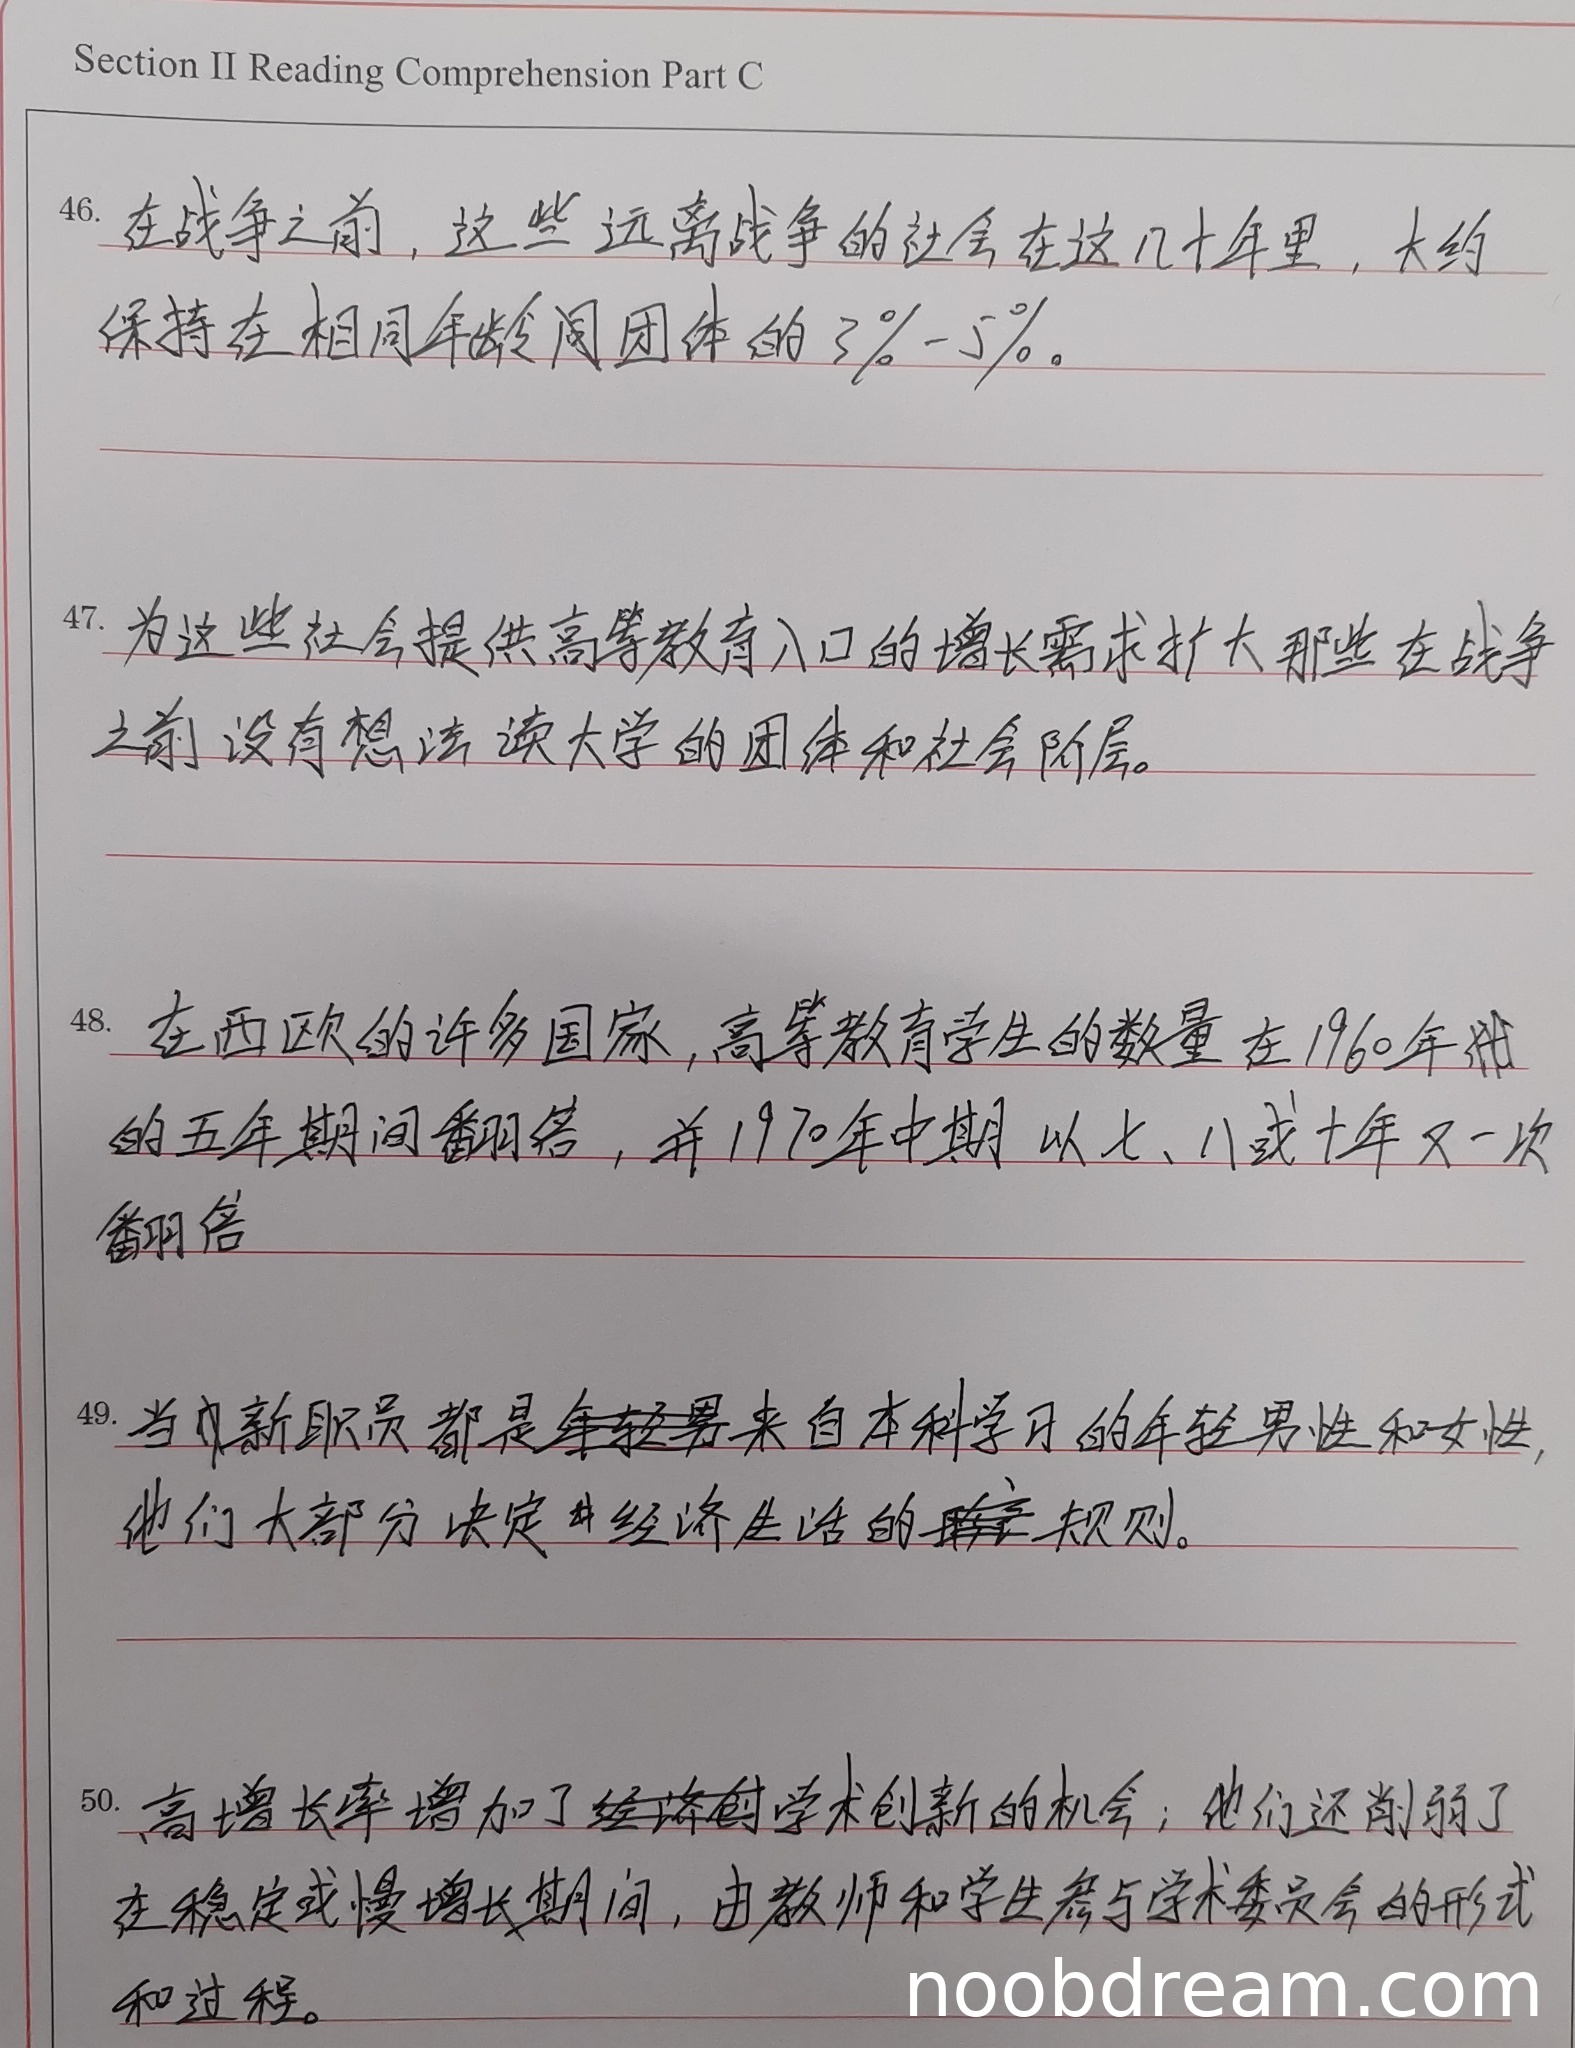 Section II Reading Comprehension Part C
46. 在战争之前，这些远离战争的社会在这几十年里，大约
保持在相同年龄阅团体的3%-5%。
47. 为这些社会提供高等教育入口的增长需求扩大那些在战争
之前没有想法读大学的团体和社会阶层。
48. 在西欧的许多国家，高等教育学生的数量在1960年代
的五年期间翻倍，并1970年中期以七、八或十年又一次
翻倍
49. 当新职员都是年轻男来自本科学习的年轻男性和女性，
他们大部分决定经济生活的规则。
50. 高增长率增加了经济创学术创新的机会；他们还削弱了
在稳定或慢增长期间，由教师和学生参与学术委员会的形式
和过程。
noobdream.com